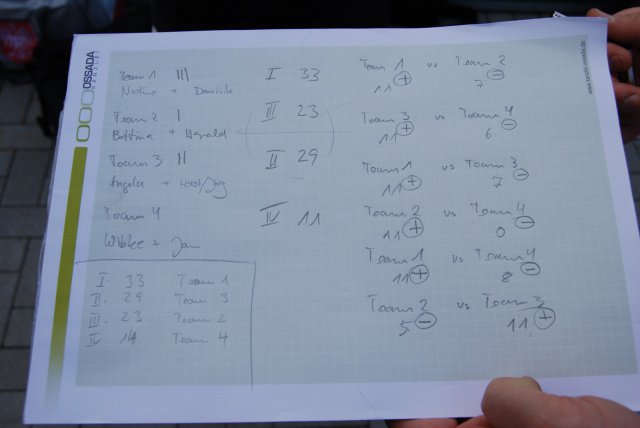 OSSADA
Team 1 III I 33
Nadine + Dominik
Team 2 I III 23
Bettina + Harald
Team 3 II II 29
Angela +
Team 4 IV 11
Wibke + Jan
I. 33 Team 1
II. 29 Team 3
III. 23 Team 2
IV 14 Team 4
Team 1 vs Team 2
11 + 7 -
Team 3 vs Team 4
11 + 6 -
Team 1 vs Team 3
11 + 7 -
Team 2 vs Team 4
11 + 0 -
Team 1 vs Team 4
11 + 8 -
Team 2 vs Team 3
5 - 11 +